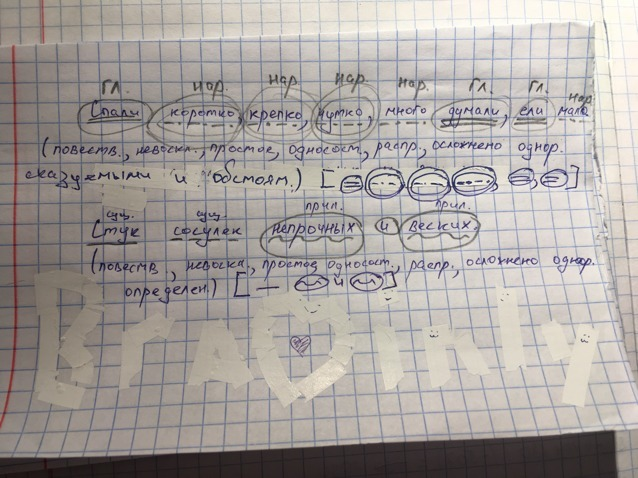 гл. нар. нар. нар. нар. гл. гл. нар.
Спали коротко, крепко, чутко, много думали, ели мало
(повеств., невоскл., простое, односост., распр., осложнено однор.
сказуемыми и обстоят.) [
сущ. сущ. прил. прил.
Стук сосулек непрочных и веских
(повеств., невоскл., простое, односост., распр., осложнено однор.
определен.) [ и ]
Brainly